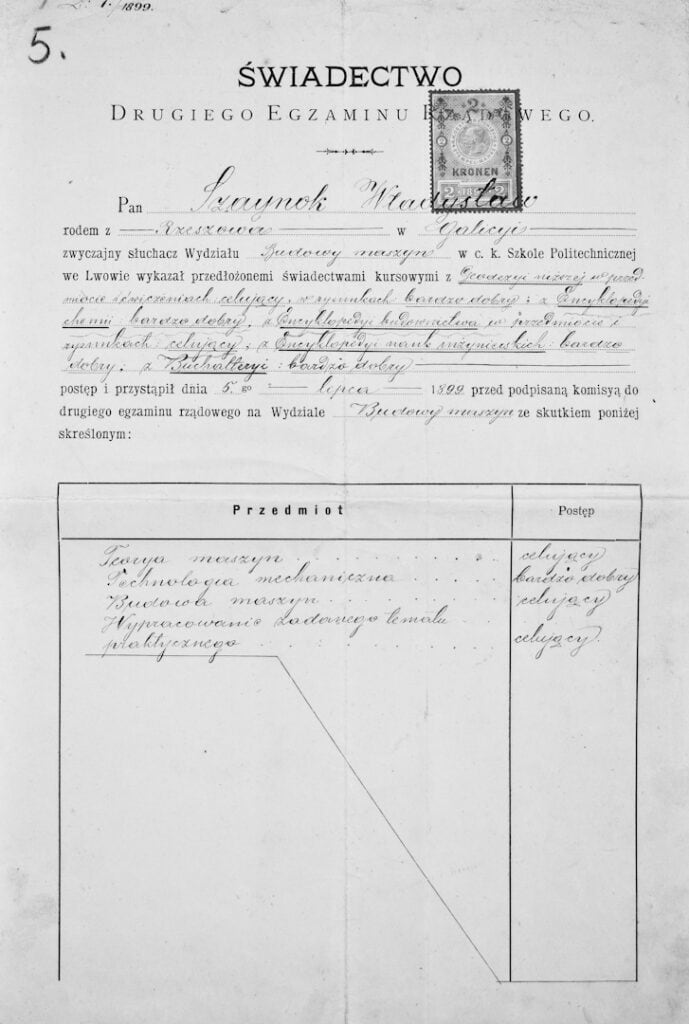 1899.
5.
ŚWIADECTWO
DRUGIEGO EGZAMINU RZĄDOWEGO.
2
2 2
KRONEN
2 2
Pan Szaynok Władysław
rodem z Rzeszowa w Galicyi
zwyczajny słuchacz Wydziału Budowy maszyn w c. k. Szkole Politechnicznej
we Lwowie wykazał przedłożonemi świadectwami kursowymi z Geodezyi niższej w przed-
miocie i ćwiczeniach: celujący, w rysunkach bardzo dobry; z Encyklopedyi
chemii: bardzo dobry, z Encyklopedyi budownictwa w przedmiocie i
rysunkach: celujący; z Encyklopedyi nauk inżynierskich: bardzo
dobry; z Buchalteryi: bardzo dobry
postęp i przystąpił dnia 5. go lipca 1899 przed podpisaną komisyą do
drugiego egzaminu rządowego na Wydziale Budowy maszyn ze skutkiem poniżej
skreślonym:
Przedmiot Postęp
Teorya maszyn . . . . . . . celujący
Technologia mechaniczna . . . . bardzo dobry
Budowa maszyn . . . . . . celujący
Wypracowanie zadanego tematu . .
praktycznego . . . . . . . celujący.